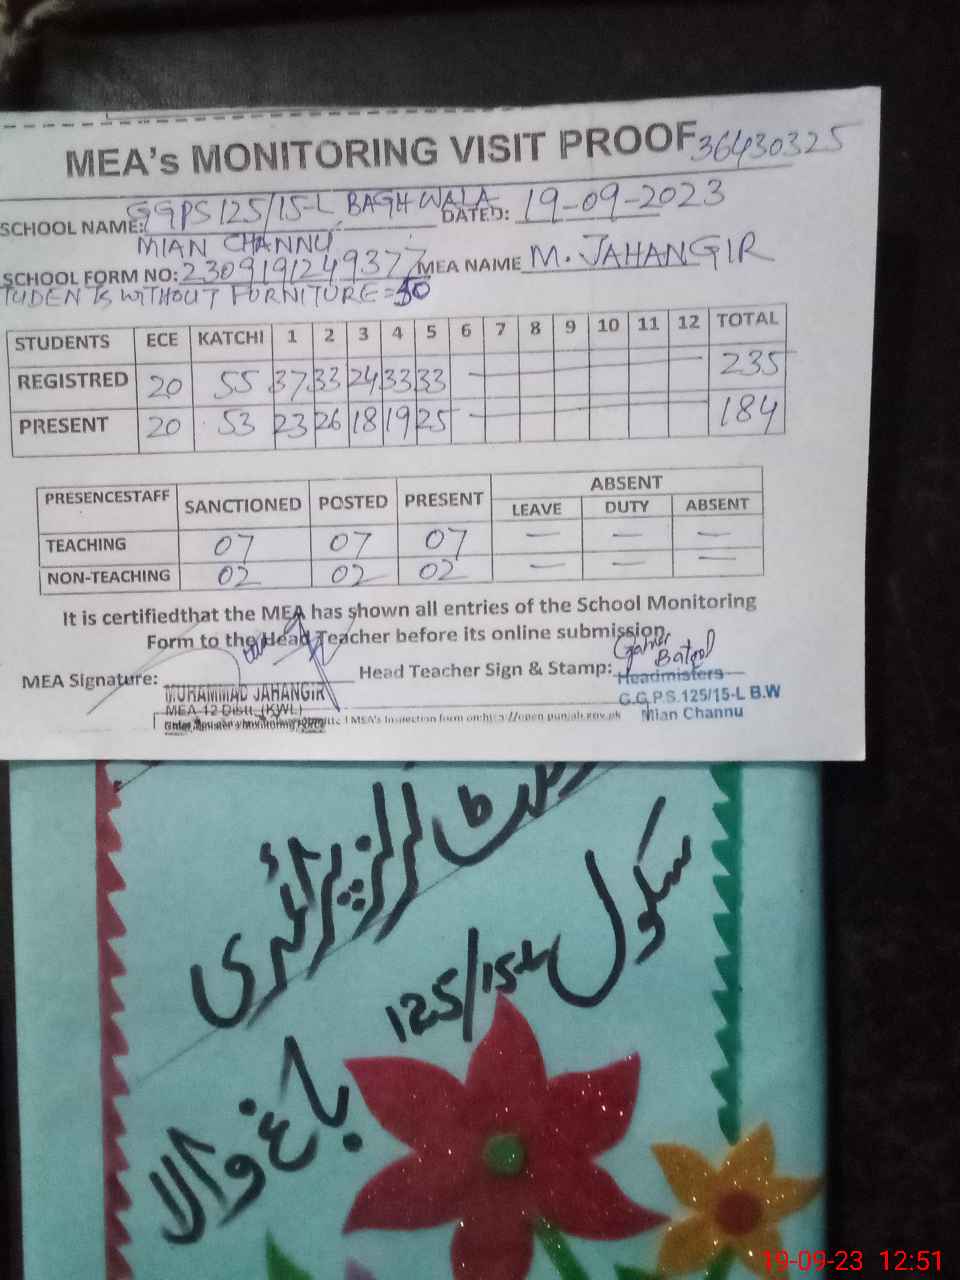 MEA's MONITORING VISIT PROOF 36430325
SCHOOL NAME: GGPS 125/15-L BAGH WALA DATED: 19-09-2023
MIAN CHANNU
SCHOOL FORM NO: 2309191249377 MEA NAME M. JAHANGIR
TUDENTS WITHOUT FURNITURE = 50
STUDENTS ECE KATCHI 1 2 3 4 5 6 7 8 9 10 11 12 TOTAL
REGISTRED 20 55 37 33 24 33 33 235
PRESENT 20 53 23 26 18 19 25 184
PRESENCESTAFF SANCTIONED POSTED PRESENT ABSENT
LEAVE DUTY ABSENT
TEACHING 07 07 07 — — —
NON-TEACHING 02 02 02 — — —
It is certifiedthat the MEA has shown all entries of the School Monitoring
Form to the Head Teacher before its online submission.
MEA Signature: Head Teacher Sign & Stamp: Batool
MUHAMMAD JAHANGIR Headmisters
MEA 12 Distt. (KWL) G.G.P.S.125/15-L B.W
MEA's Inspection form on:http://open.punjab.gov.pk Mian Channu
گرلز پرائمری
سکول 125/15-L
باغ والا
19-09-23 12:51